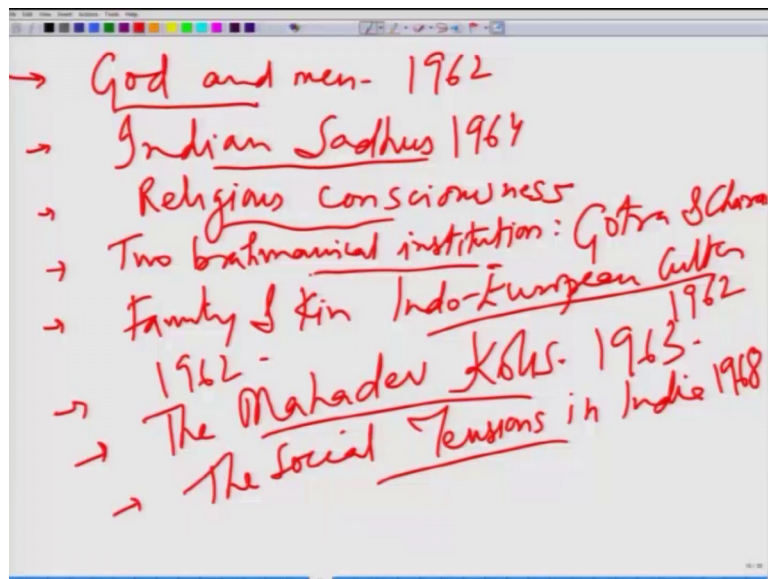 → God and men- 1962
→ Indian Sadhus 1964
→ Religious consciousness
→ Two brahmanical institution: Gotra & Chara
→ Family & Kin Indo-European Culten 1962
1962 -
→ The Mahadev Kolis. 1963.
→ The Social Tensions in India 1968